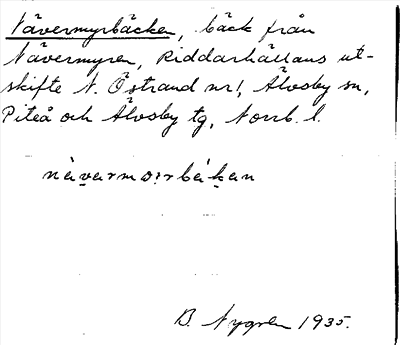 Nävermyrbäcken, bäck från
Nävermyren, Riddarhällans ut-
skifte N. Östrand nr 1, Älvsby sn,
Piteå och Älvsby tg, Norrb. l.
B. Nygren 1935.